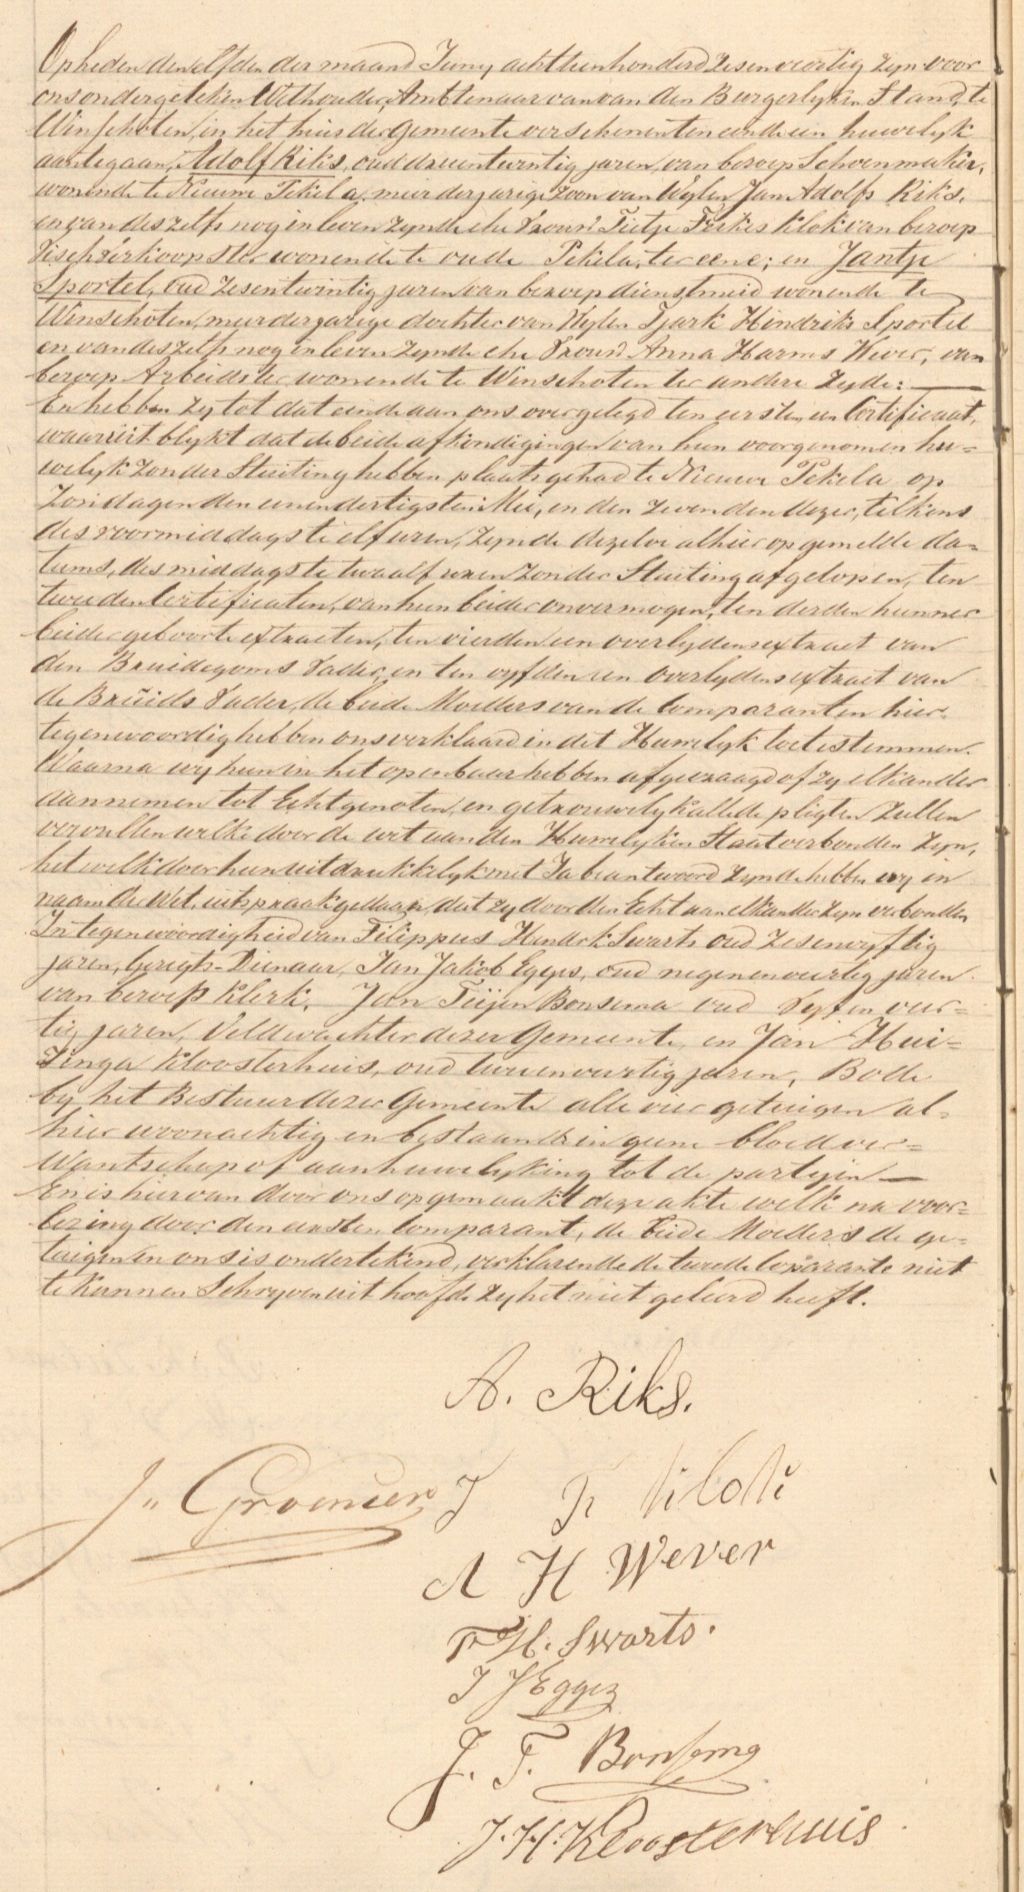 Op heden den elfden der maand Juny achttienhonderd zesenveertig zyn voor
ons ondergeteken Wethouder, Ambtenaar van van den Burgerlyken Stand, te
Winschoten, in het huis der Gemeente verschenen ten einde een huwelyk
aantegaan, Adolf Riks, oud drieentwintig jaren, van beroep Schoenmaker,
wonende te Nieuwe Pekela, meerderjarige Zoon van Wylen Jan Adolfs Riks,
en van deszelfs nog in leven zynde ehe Vrouw Tietje Ferkes Klok van beroep
Vischverkoopster wonende te oude Pekela, ter eene; en Jantje
Sportel, oud zesentwintig jaren van beroep dienstmeid wonende te
Winschoten, meerderjarige dochter van Wylen Tjark Hindriks Sportel
en van deszelfs nog in leven zynde ehe Vrouw Anna Harms Wever, van
beroep Arbeidster wonende te Winschoten ter andere zyde:
En hebben zy tot dat einde aan ons overgelegd ten eersten een Certificaat,
waaruit blykt dat de beide afkondigingen van hun voorgenomen hu=
welyk zonder Stuiting hebben plaats gehad te Nieuwe Pekela op
Zondagen den eenendertigsten Mei, en den zevenden dezer, telkens
des voormiddags te elf uren, zynde dezelve alhier op gemelde da=
tums, des middags te twaalf uren zonder Stuiting afgelopen, ten
tweeden Certificaten, van hun beider onvermogen, ten derden hunner
beider geboorte extracten, ten vierden een overlydens extract van
den Bruidegoms Vader, en ten vyfden een overlydens extract van
de Bruids Vader, de beide Moeders van de Comparanten hier
tegenwoordig hebben ons verklaard in dit Huwelyk toetestemmen.
Waarna wy hun in het openbaar hebben afgevraagd of zy elkander
aannemen tot Echtgenoten, en getrouwelyk alle de pligten zullen
vervullen welke door de wet aan den Huwelyken Staat verbonden zyn,
het welk door hun uitdrukkelyk met Ja beantwoord zynde hebben wy in
naam der Wet, uitspraak gedaan, dat zy door den Echt aan elkander zyn verbonden
In tegenwoordigheid van Filippus Hendrik Swarts oud zesenvyftig
jaren, Geregts-Dienaar, Jan Jakob Egges, oud negenenveertig jaren
van beroep Klerk, Jan Teijen Bonsema oud Vyfenveer=
tig jaren, Veldwachter dezer Gemeente, en Jan Hui=
zinga Kloosterhuis, oud tweeenveertig jaren, Bode
by het Bestuur dezer Gemeente alle vier getuigen al=
hier woonachtig en bestaande in geene bloedver=
wantschap of aanhuwelyking tot de partyen
En is hiervan door ons opgemaakt deze akte welk na voor=
lezing door den eersten Comparant, de beide Moeders de ge=
tuigen en ons is ondertekend, verklarende de tweede Comparante niet
te kunnen Schryven uit hoofde zy het niet geleerd heeft.
A. Riks.
J. Groenier
T F Klok
A H Wever
F. H. Swarts.
J J Egges
J. T. Bonsema
J. H. Kloosterhuis